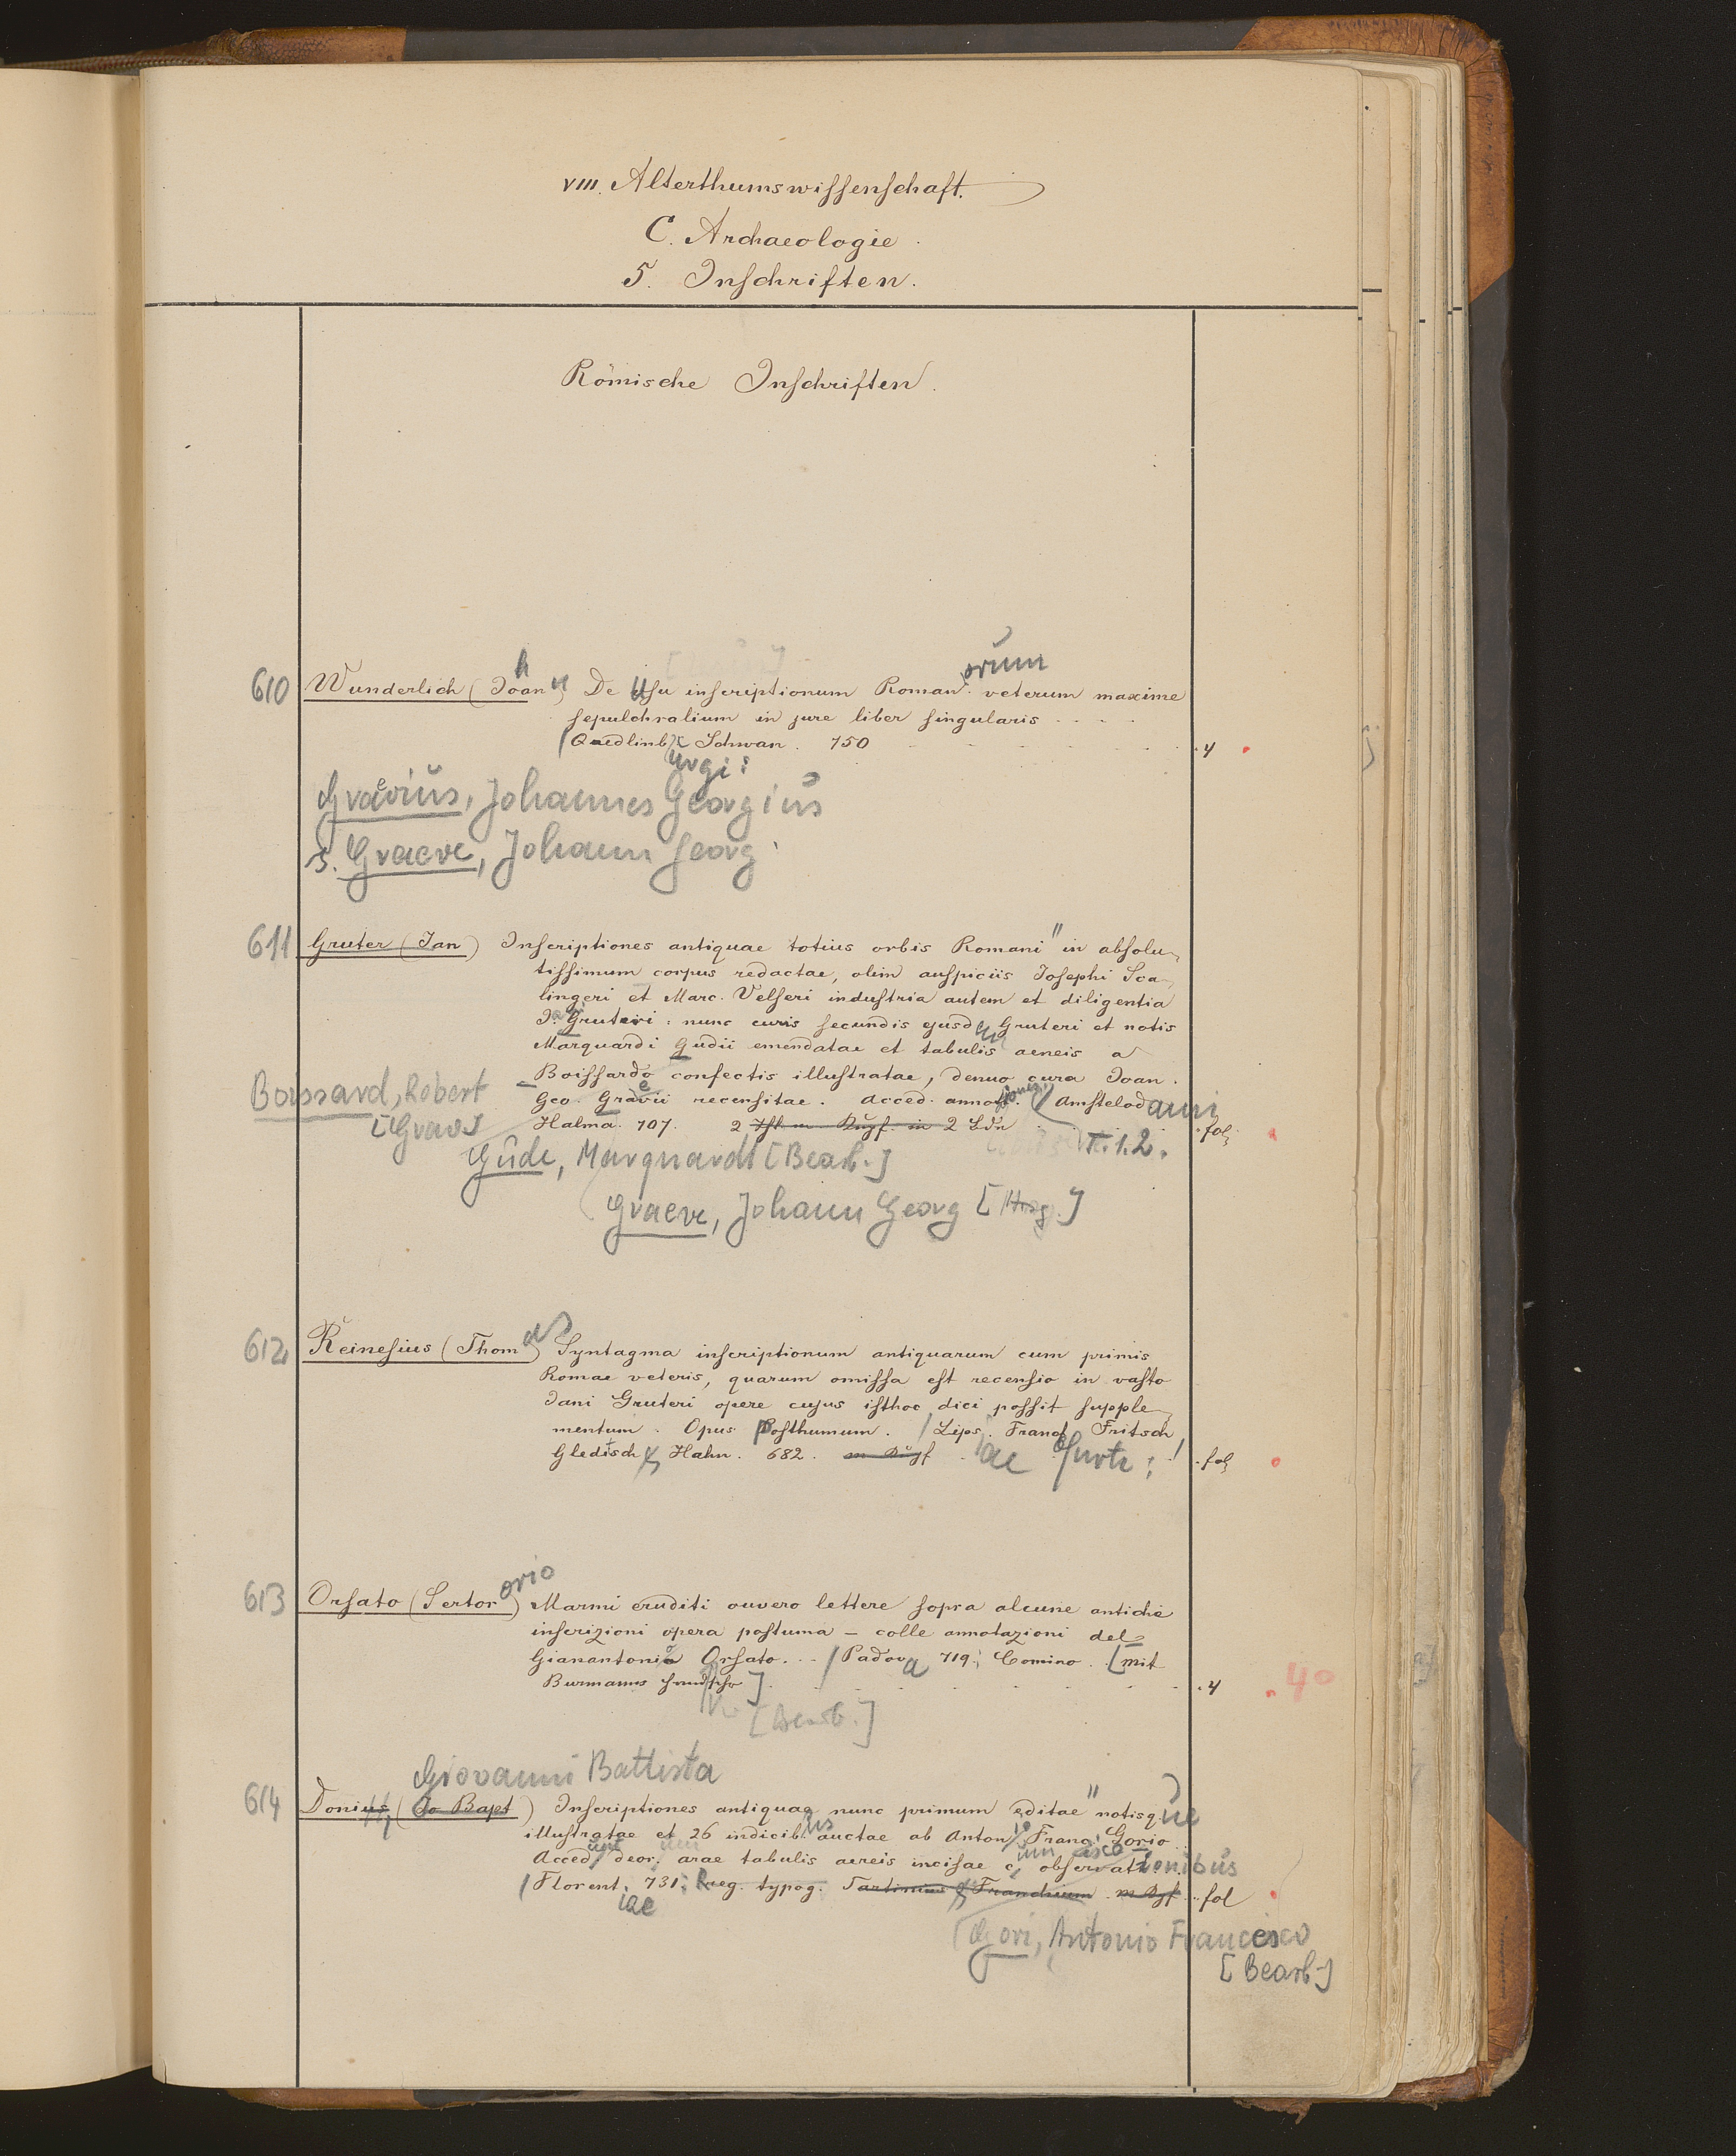 VIII. Alterthumswissenschaft.
C. Archaeologie.
5. Inschriften.
Römische Inschriften.
orum
610 Wunderlich (Joan) De Usu inscriptionum Roman. veterum maxime
sepulchralium in jure liber singularis
(Quedlinb. Schwan. 750 4
urgi:
Graevius, Johannes Georgius
s. Graeve, Johann Georg
611 Gruter (Jan) Inscriptiones antiquae totius orbis Romani in absolu-
tissimum corpus redactae, olim auspiciis Josephi Sca-
lingeri et Marc. Velseri industria autem et diligentia
Jani Gruteri: nunc curis secundis ejusdem Gruteri et notis
Marquardi Gudii emendatae et tabulis aeneis a
Boissardo confectis illustratae, denuo cura Joan.
Boissard, Robert
Geo. Graevii recensitae. Acced. annot. Amstelodami
[Grav]
Halma. 707. 2 fol.
T. 1.2.
Gude, Marquardt [Bearb.]
Graeve, Johann Georg [Hrsg.]
612 Reinesius (Thomas) Syntagma inscriptionum antiquarum cum primis
Romae veteris, quarum omissa est recensio in vasto
Jani Gruteri opere cujus isthoc dici possit supple-
mentum. Opus posthumum. / Lips. Francf. Fritsch
Gleditsch & Hahn. 682. fol.
iae furti:
orio
613 Orsato (Sertor) Marmi eruditi ouvero lettere sopra alcune antiche
inscrizioni opera postuma – colle annotazioni del
Gianantonio Orsato. / Padova 719. Comino. [mit
Burmanns 4 40
[Bearb.]
Giovanni Battista
614 Donius (Jo Bapt) Inscriptiones antiquae nunc primum editae notisque
illustratae et 26 indicibus auctae ab Antonio Franc. Gorio
Acced. deor. arae tabulis aereis incisae c. observationibus
/ Florent. 731. Reg. typog. Tartinium & Franchium fol
iae
Gori, Antonio Francesco
[Bearb.]